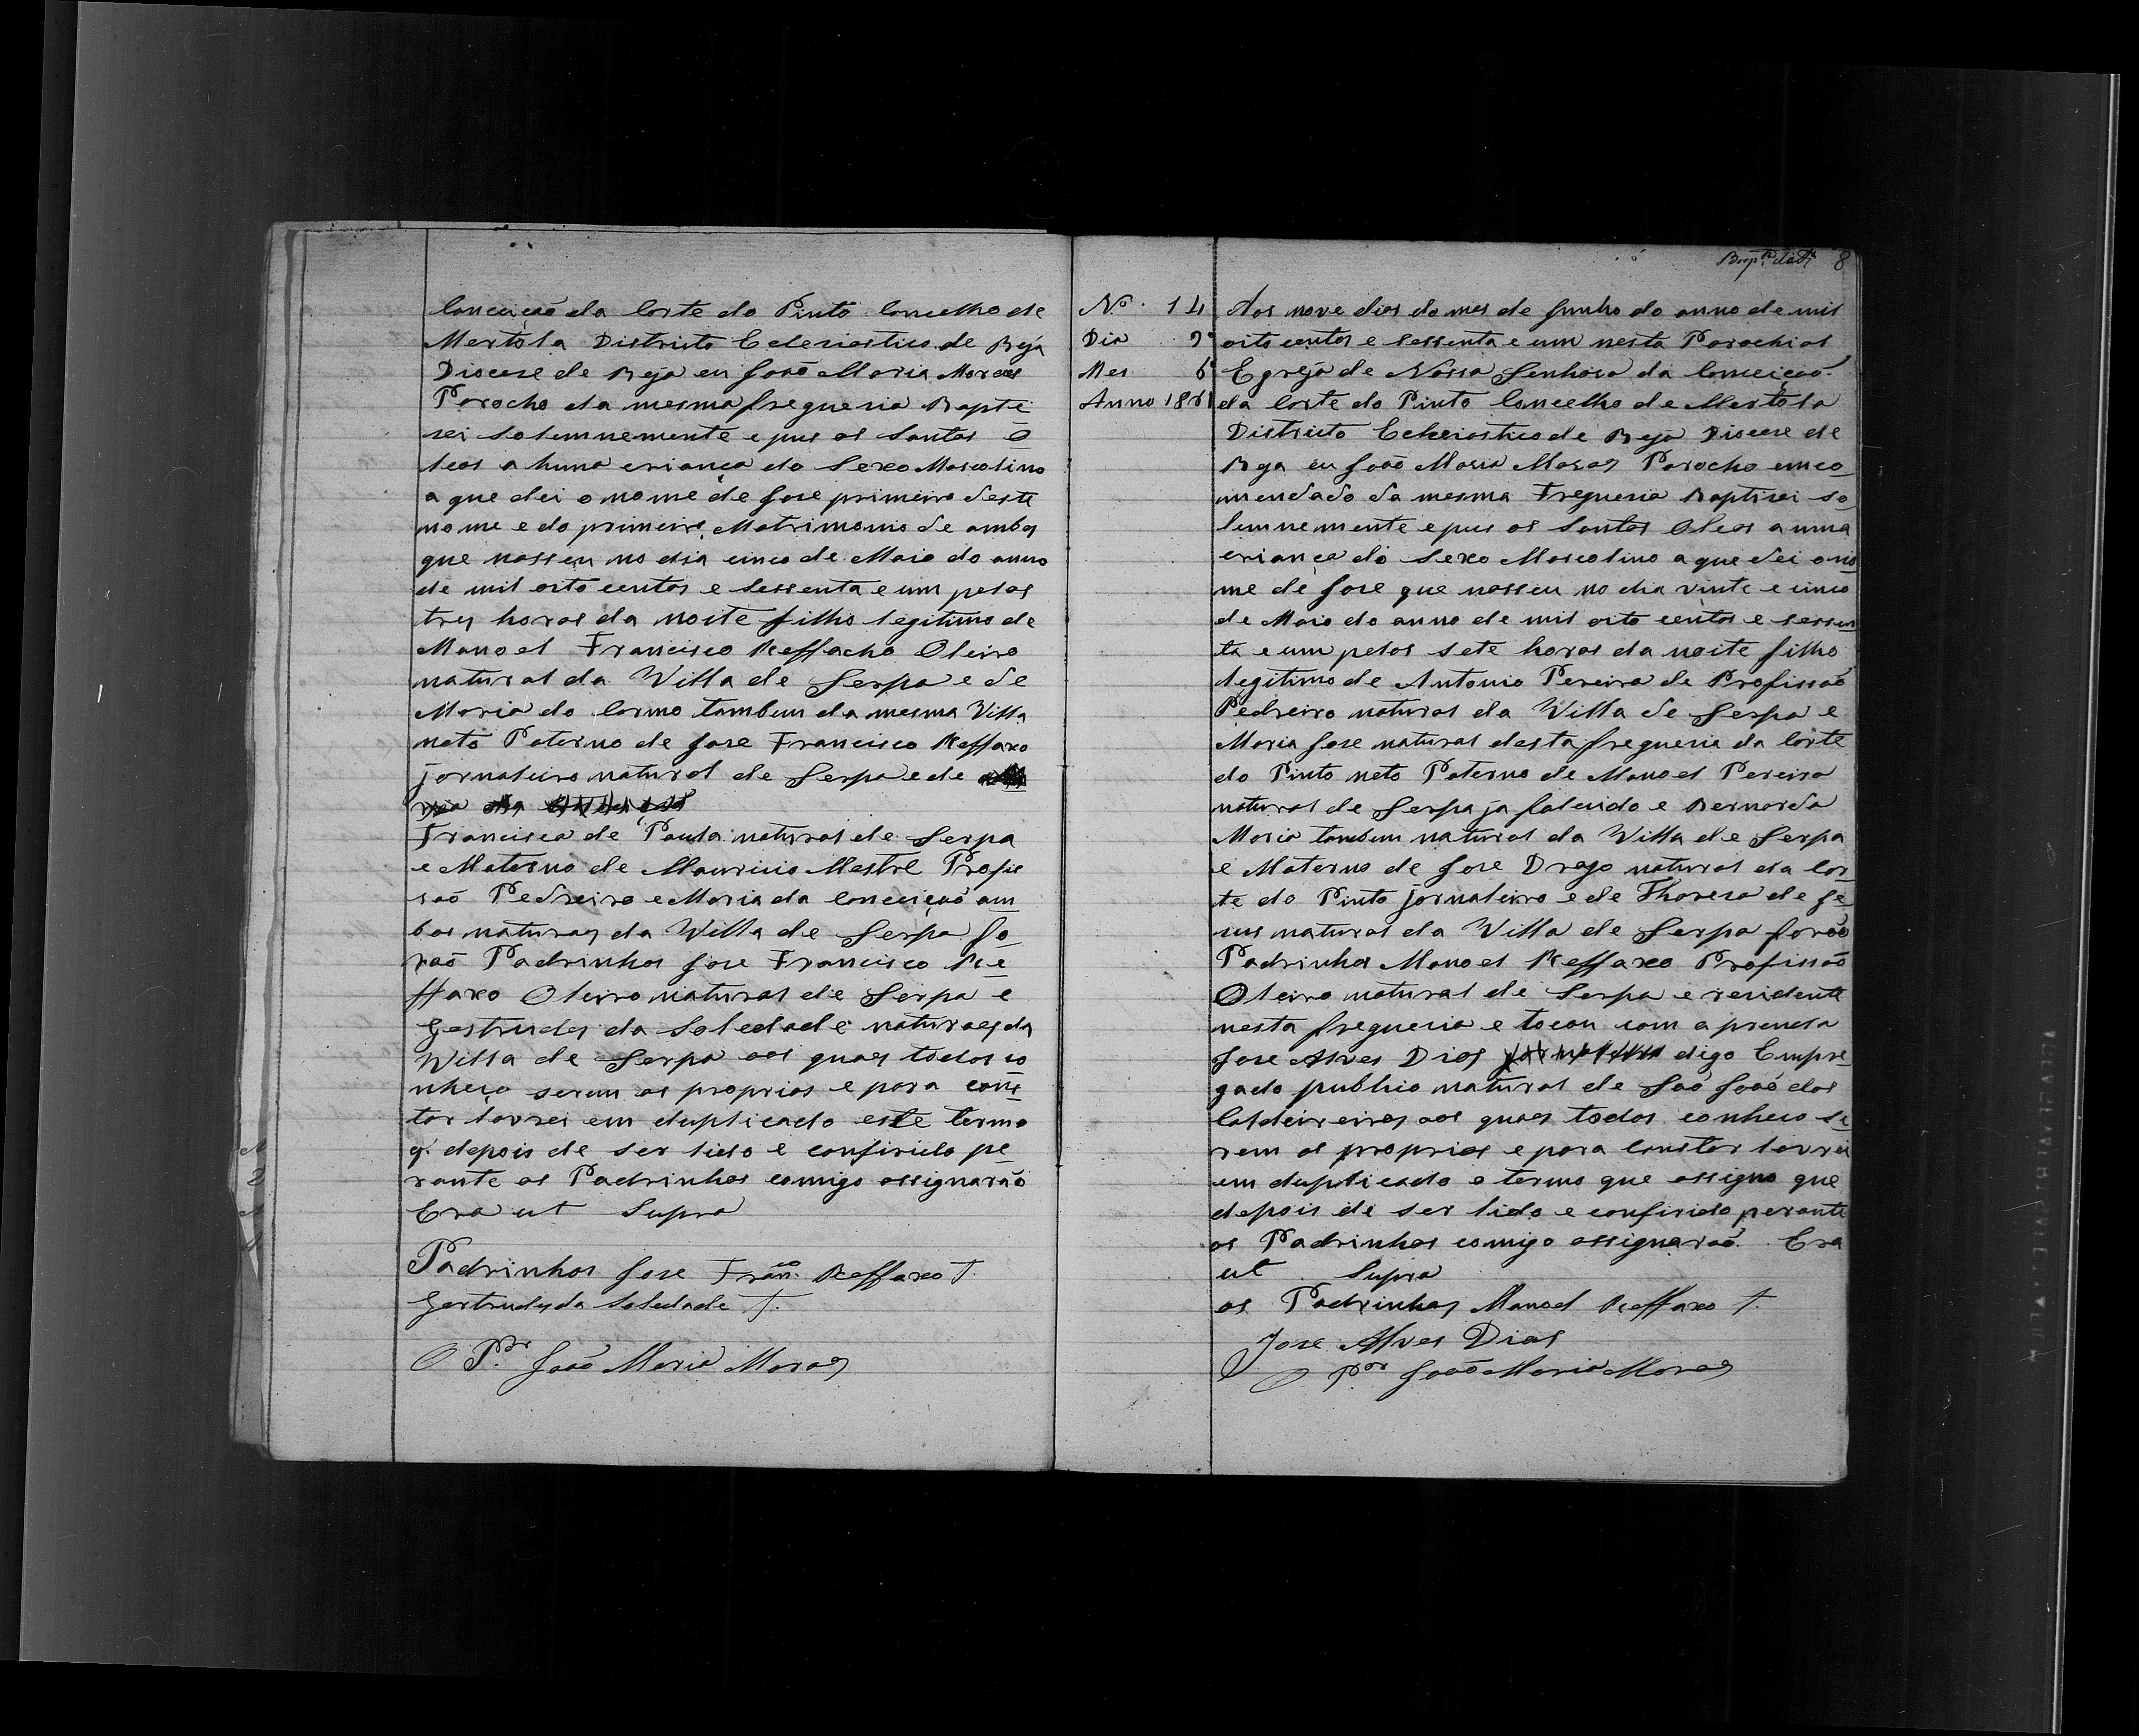 Conceição da Corte do Pinto Concelho de
Mertola Districto Eclesiastico de Beja
Diocese de Beja eu João Maria Moraes
Parocho da mesma freguesia Bapti
sei solemnemente e pus os Santos O
leos a huma criança do Sexo Mascolino
a que dei o nome de Jose primeiro deste
nome e do primeiro Matrimonio de ambos
que nasseu no dia cinco de Maio do anno
de mil oito centos e sessenta e um pelas
tres horas da noite filho legitimo de
Manoel Francisco Reffacho Oleiro
natural da Villa de Serpa e de
Maria do Carmo tambem da mesma Villa
neto Paterno de Jose Francisco Reffaxo
jornaleiro natural de Serpa e de
Francisca de Paula natural de Serpa
e Materno de Mauricio Mestre Profis
saõ Pedreiro e Maria da Conceiçaõ am
bos naturaes da Villa de Serpa fo
raõ Padrinhos Jose Francisco Re
ffaxo Oleiro natural de Serpa e
Gestrudes da Soledade naturaes da
Villa de Serpa aos quaes todos co
nheço serem os proprios e para cons
tar lavrei em duplicado este termo
q. depois de ser lido e confirido pe
rante os Padrinhos comigo assignarão
Era ut Supra
Padrinhos Jose Fran.co Reffaxo †.
Gertrudes da Soledade †.
O P.or João Maria Moraes
Bap.    8
N.o 14
Dia 9
Mes 6
Anno 1861
Aos nove dias do mes de Junho do anno de mil
oito centos e sessenta e um nesta Parochial
Egreja de Nossa Senhora da Conceiçaõ
da Corte do Pinto Concelho de Mertola
Districto Eclesiastico de Beja Diocese de
Beja eu João Maria Moraes Parocho emco
mendado da mesma Freguesia Baptisei so
lemnemente e pus os Santos Oleos a uma
criança do Sexo Mascolino a que dei o no
me de Jose que nasseu no dia vinte e cinco
de Maio do anno de mil oito centos e sessen
ta e um pelas sete horas da noite filho
legitimo de Antonio Pereira de Profissaõ
Pedreiro natural da Villa de Serpa e
Maria Jose natural desta freguesia da Corte
do Pinto neto Paterno de Manoel Pereira
natural de Serpa ja falecido e Bernarda
Maria tambem natural da Villa de Serpa
e Materno de Jose Drago natural da Cor
te do Pinto jornaleiro e de Thereza de Je
sus natural da Villa de Serpa foraõ
Padrinhos Manoel Reffaxo Profissaõ
Oleiro natural de Serpa e residente
nesta freguesia e tocou com a prenda
Jose Alves Dias jornaleiro digo Empre
gado publico natural de Saõ Joaõ dos
Caldeireiros aos quaes todos conheco se
rem os proprios e para constar lavrei
em duplicado o termo que assigno que
depois de ser lido e confirido perante
os Padrinhos comigo assignaraõ. Era
ut Supra
os Padrinhos Manoel Reffaxo †.
Jose Alves Dias
O P.or João Maria Moraes